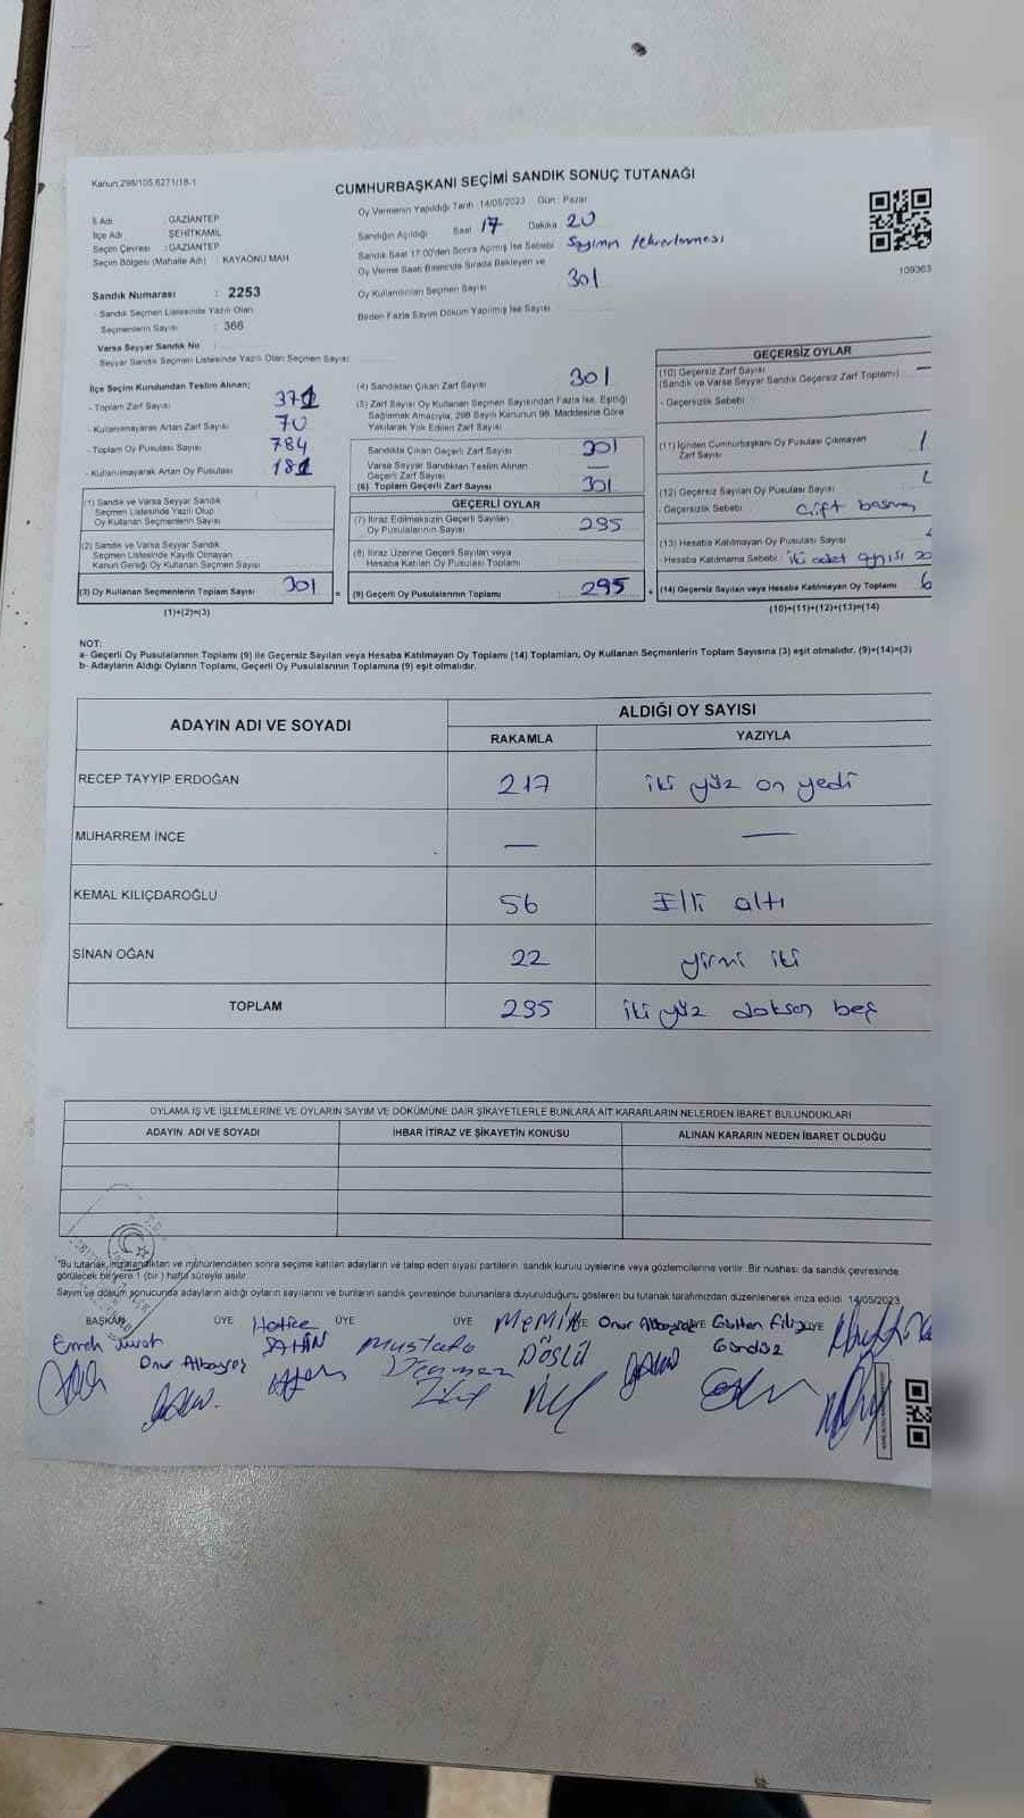 Kanun:298/105,6271/18-1
CUMHURBAŞKANI SEÇİMİ SANDIK SONUÇ TUTANAĞI
İl Adı : GAZİANTEP
İlçe Adı : ŞEHİTKAMİL
Seçim Çevresi : GAZİANTEP
Seçim Bölgesi (Mahalle Adı) : KAYAÖNÜ MAH
Sandık Numarası : 2253
- Sandık Seçmen Listesinde Yazılı Olan
Seçmenlerin Sayısı : 366
Varsa Seyyar Sandık No :
Seyyar Sandık Seçmen Listesinde Yazılı Olan Seçmen Sayısı:
Oy Vermenin Yapıldığı Tarih :14/05/2023 Gün : Pazar
Sandığın Açıldığı Saat 17 Dakika 20
Sandık Saat 17.00'den Sonra Açılmış İse Sebebi Sayımın tekrarlanması
Oy Verme Saati Bitiminde Sırada Bekleyen ve
Oy Kullandırılan Seçmen Sayısı 301
Birden Fazla Sayım Döküm Yapılmış İse Sayısı
109363
İlçe Seçim Kurulundan Teslim Alınan;
- Toplam Zarf Sayısı 371
- Kullanılmayarak Artan Zarf Sayısı 70
- Toplam Oy Pusulası Sayısı 784
- Kullanılmayarak Artan Oy Pusulası 181
(1) Sandık ve Varsa Seyyar Sandık
Seçmen Listesinde Yazılı Olup
Oy Kullanan Seçmenlerin Sayısı
(2) Sandık ve Varsa Seyyar Sandık
Seçmen Listesinde Kayıtlı Olmayan
Kanun Gereği Oy Kullanan Seçmen Sayısı
(3) Oy Kullanan Seçmenlerin Toplam Sayısı 301 =
(1)+(2)=(3)
(4) Sandıktan Çıkan Zarf Sayısı 301
(5) Zarf Sayısı Oy Kullanan Seçmen Sayısından Fazla İse, Eşitliği
Sağlamak Amacıyla, 298 Sayılı Kanunun 98. Maddesine Göre
Yakılarak Yok Edilen Zarf Sayısı
Sandıkta Çıkan Geçerli Zarf Sayısı 301
Varsa Seyyar Sandıktan Teslim Alınan
Geçerli Zarf Sayısı —
(6) Toplam Geçerli Zarf Sayısı 301
GEÇERLİ OYLAR
(7) İtiraz Edilmeksizin Geçerli Sayılan
Oy Pusulalarının Sayısı 295
(8) İtiraz Üzerine Geçerli Sayılan veya
Hesaba Katılan Oy Pusulası Toplamı
(9) Geçerli Oy Pusulalarının Toplamı : 295 +
GEÇERSİZ OYLAR
(10) Geçersiz Zarf Sayısı —
(Sandık ve Varsa Seyyar Sandık Geçersiz Zarf Toplamı)
- Geçersizlik Sebebi
(11) İçinden Cumhurbaşkanı Oy Pusulası Çıkmayan
Zarf Sayısı 1
(12) Geçersiz Sayılan Oy Pusulası Sayısı
- Geçersizlik Sebebi Çift basım
(13) Hesaba Katılmayan Oy Pusulası Sayısı
- Hesaba Katılmama Sebebi iki adet aynısı
(14) Geçersiz Sayılan veya Hesaba Katılmayan Oy Toplamı 6
(10)+(11)+(12)+(13)=(14)
NOT:
a- Geçerli Oy Pusulalarının Toplamı (9) ile Geçersiz Sayılan veya Hesaba Katılmayan Oy Toplamı (14) Toplamları, Oy Kullanan Seçmenlerin Toplam Sayısına (3) eşit olmalıdır. (9)+(14)=(3)
b- Adayların Aldığı Oyların Toplamı, Geçerli Oy Pusulalarının Toplamına (9) eşit olmalıdır.
ADAYIN ADI VE SOYADI
ALDIĞI OY SAYISI
RAKAMLA YAZIYLA
RECEP TAYYİP ERDOĞAN 217 iki yüz on yedi
MUHARREM İNCE — —
KEMAL KILIÇDAROĞLU 56 Elli altı
SİNAN OĞAN 22 yirmi iki
TOPLAM 295 iki yüz doksan beş
OYLAMA İŞ VE İŞLEMLERİNE VE OYLARIN SAYIM VE DÖKÜMÜNE DAİR ŞİKAYETLERLE BUNLARA AİT KARARLARIN NELERDEN İBARET BULUNDUKLARI
ADAYIN ADI VE SOYADI İHBAR İTİRAZ VE ŞİKAYETİN KONUSU ALINAN KARARIN NEDEN İBARET OLDUĞU
*Bu tutanak, imzalandıktan ve mühürlendikten sonra seçime katılan adayların ve talep eden siyasi partilerin sandık kurulu üyelerine veya gözlemcilerine verilir. Bir nüshası da sandık çevresinde
görülecek bir yere 1 (bir) hafta süreyle asılır.
Sayım ve döküm sonucunda adayların aldığı oyların sayılarını ve bunların sandık çevresinde bulunanlara duyurulduğunu gösteren bu tutanak tarafımızdan düzenlenerek imza edildi. 14/05/2023
BAŞKAN ÜYE ÜYE ÜYE ÜYE ÜYE ÜYE
Onur Albayrak
Hatice ŞAHİN
Mustafa
MEMİŞ
Onur Albayrak
Gülten Filiz
Gündüz